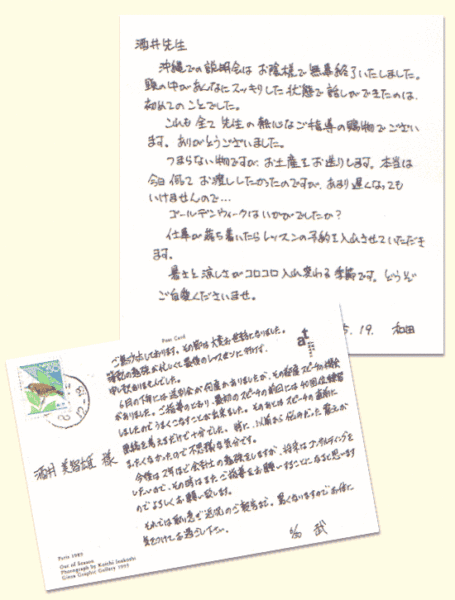 酒井先生
沖縄での説明会は お陰様で無事終了いたしました。
頭の中があんなにスッキリした状態で話しができたのは、
初めてのことでした。
これも全て先生の熱心なご指導の賜物でござい
ます。ありがとうございました。
つまらない物ですが、お土産をお送りします。本当は
今日伺って お渡ししたかったのですが、あまり遅くなっても
いけませんので…
ゴールデンウィークはいかがでしたか?
仕事が落ち着いたらレッスンの予約を入れさせていただき
ます。
暑さと涼しさがコロコロ入れ変わる季節です。どうぞ
ご自愛くださいませ。
5.19. 和田
Post Card
at
ご無沙汰しております。その節は大変お世話になりました。
最後のレッスンに行けず、
申し訳ありませんでした。
6月の下旬には送別会が何度かありましたが、その都度スピーチの機会
がありました。ご指導のとおり、最初のスピーチの前日には40回位練習
しましたのでうまくこなすことが出来ました。そのあとはスピーチの直前に
またくなかったので不思議な気分です。
今後は2年ほど会計士の勉強をしますが、将来はコンサルティングを
したいので、その時はまたご指導をお願いすることになると思います
のでよろしくお願い致します。
それでは取り急ぎ近況のご報告まで。暑くなりますのでお体に
気をつけてお過ごし下さい。
酒井 美智雄 様
Paris 1989
Out of Season
Photograph by Koichi Inakoshi
Ginza Graphic Gallery 1995